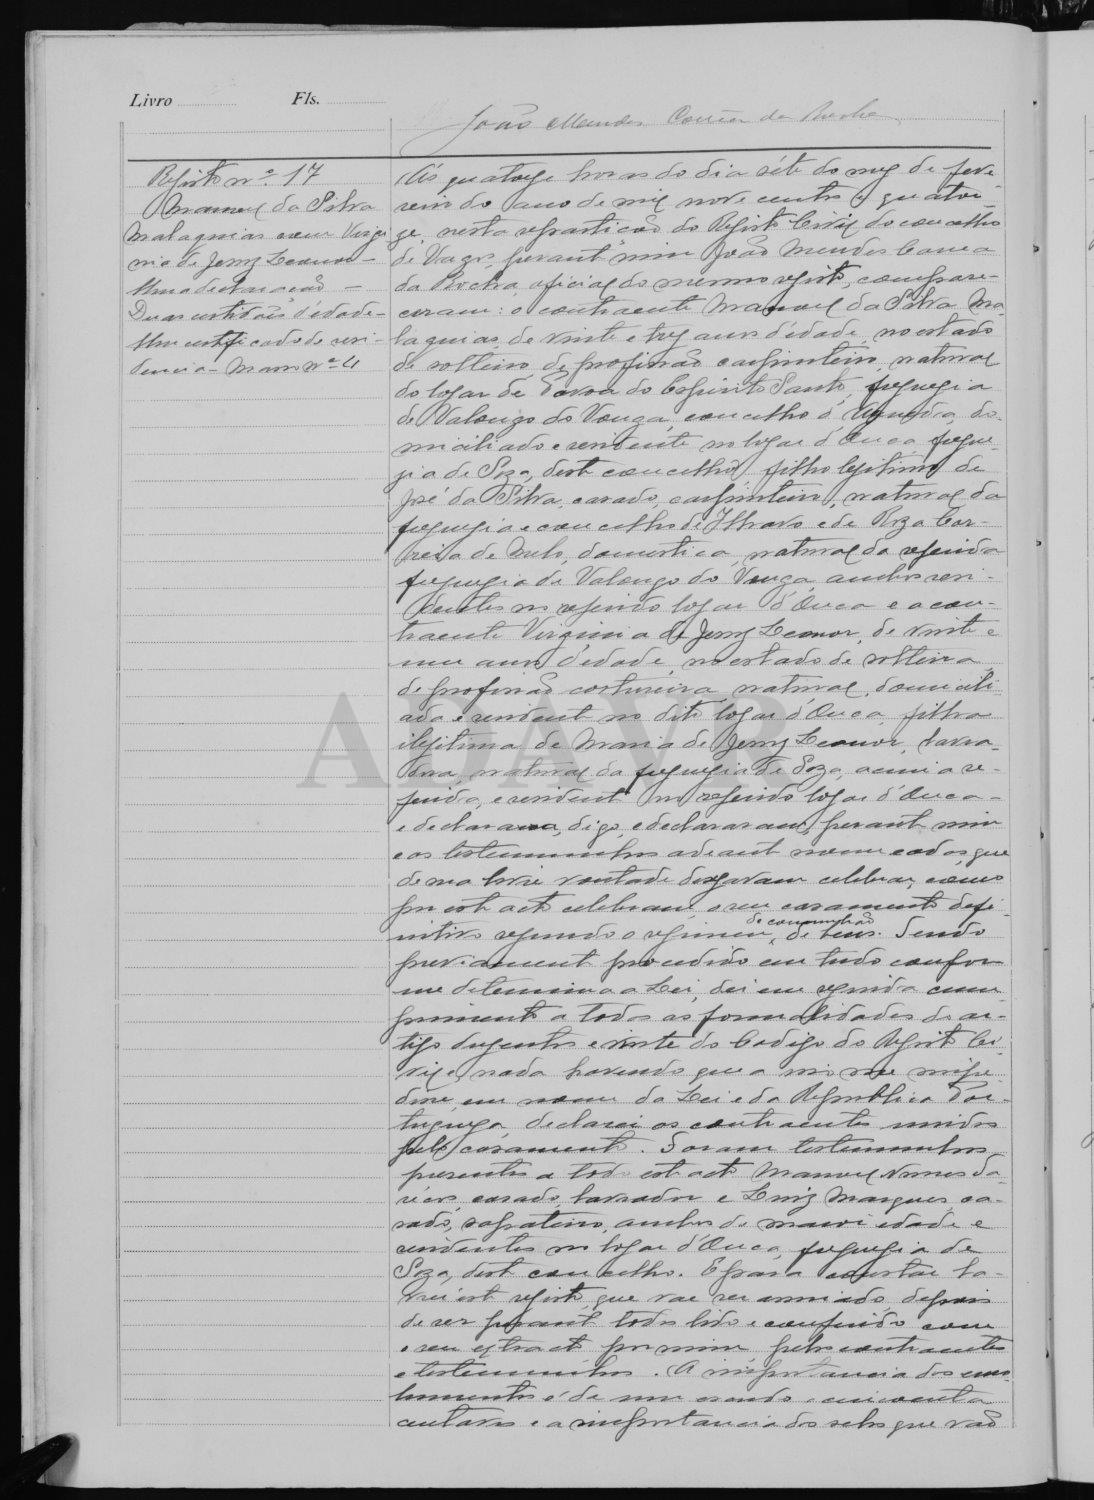 Livro Fls.
João Mendes Correia da Rocha
Registo nº 17
Manoel da Silva
Malaquias com Virgi
nia de Jesus Leonor -
Uma declaração -
Duas certidões d'edade -
Um certificado de resi-
dencia - Maço nº 4
Ás quatorze horas do dia séte do mez de feve-
reiro do ano de mil nove centos e quator-
ze, nesta repartição do Registo Civil do concelho
de Vagos, perante mim João Mendes Correia
da Rocha, oficial do mesmo registo, compare-
ceram: o contraente Manoel da Silva Ma-
laquias, de vinte e trez anos d'edade, no estado
de solteiro, de profissão carpinteiro, natural
do logar de Povoa do Espirito Santo, freguezia
de Valongo do Vouga, concelho d'Agueda, do-
miciliado e residente no logar d'Ouca, fregue-
zia de Soza, deste concelho, filho legitimo de
José da Silva, casado, carpinteiro, natural da
freguezia e concelho de Ilhavo e de Roza Cor-
reia de Melo, domestica, natural da referida
freguezia de Valongo do Vouga, ambos resi-
dentes no referido logar d'Ouca e a con-
traente Virginia de Jesus Leonor, de vinte e
um anos d'edade, no estado de solteira,
de profissão costureira, natural, domicili-
ada e residente no dito logar d'Ouca, filha
ilegitima de Maria de Jesus Leonor, lavra-
dora, natural da freguezia de Soza, acima re-
ferida, e residente no referido logar d'Ouca -
e declarava, digo, e declararam, perante mim
e as testemunhas adeante nomeadas, que
de sua livre vontade desejavam celebrar, como
por este acto celebram, o seu casamento defi-
nitivo segundo o regimen de comunhão de bens. Sendo
previamente procedido em tudo confor-
me determina a Lei, dei em seguida cum-
primento a todas as formalidades do ar-
tigo duzentos e vinte do Codigo do Registo Ci-
vil e, nada havendo que a mim me impe-
disse, em nome da Lei e da Republica Por-
tugueza, declarei os contraentes unidos
pelo casamento. Foram testemunhas
presentes a todo este acto Manoel Nunes Da-
casado, lavrador e Luiz Marques, ca-
sado, sapateiro, ambos de maior edade e
residentes no logar d'Ouca, freguezia de
Soza, deste concelho. E para constar la-
vrei este registo, que vae ser assinado, depois
de ser perante todos lido e conferido com
o seu extracto por mim, pelos contraentes
e testemunhas. A importancia dos emo-
lumentos é de um escudo e cincoenta
centavos e a importancia dos selos que vão
ADAVR